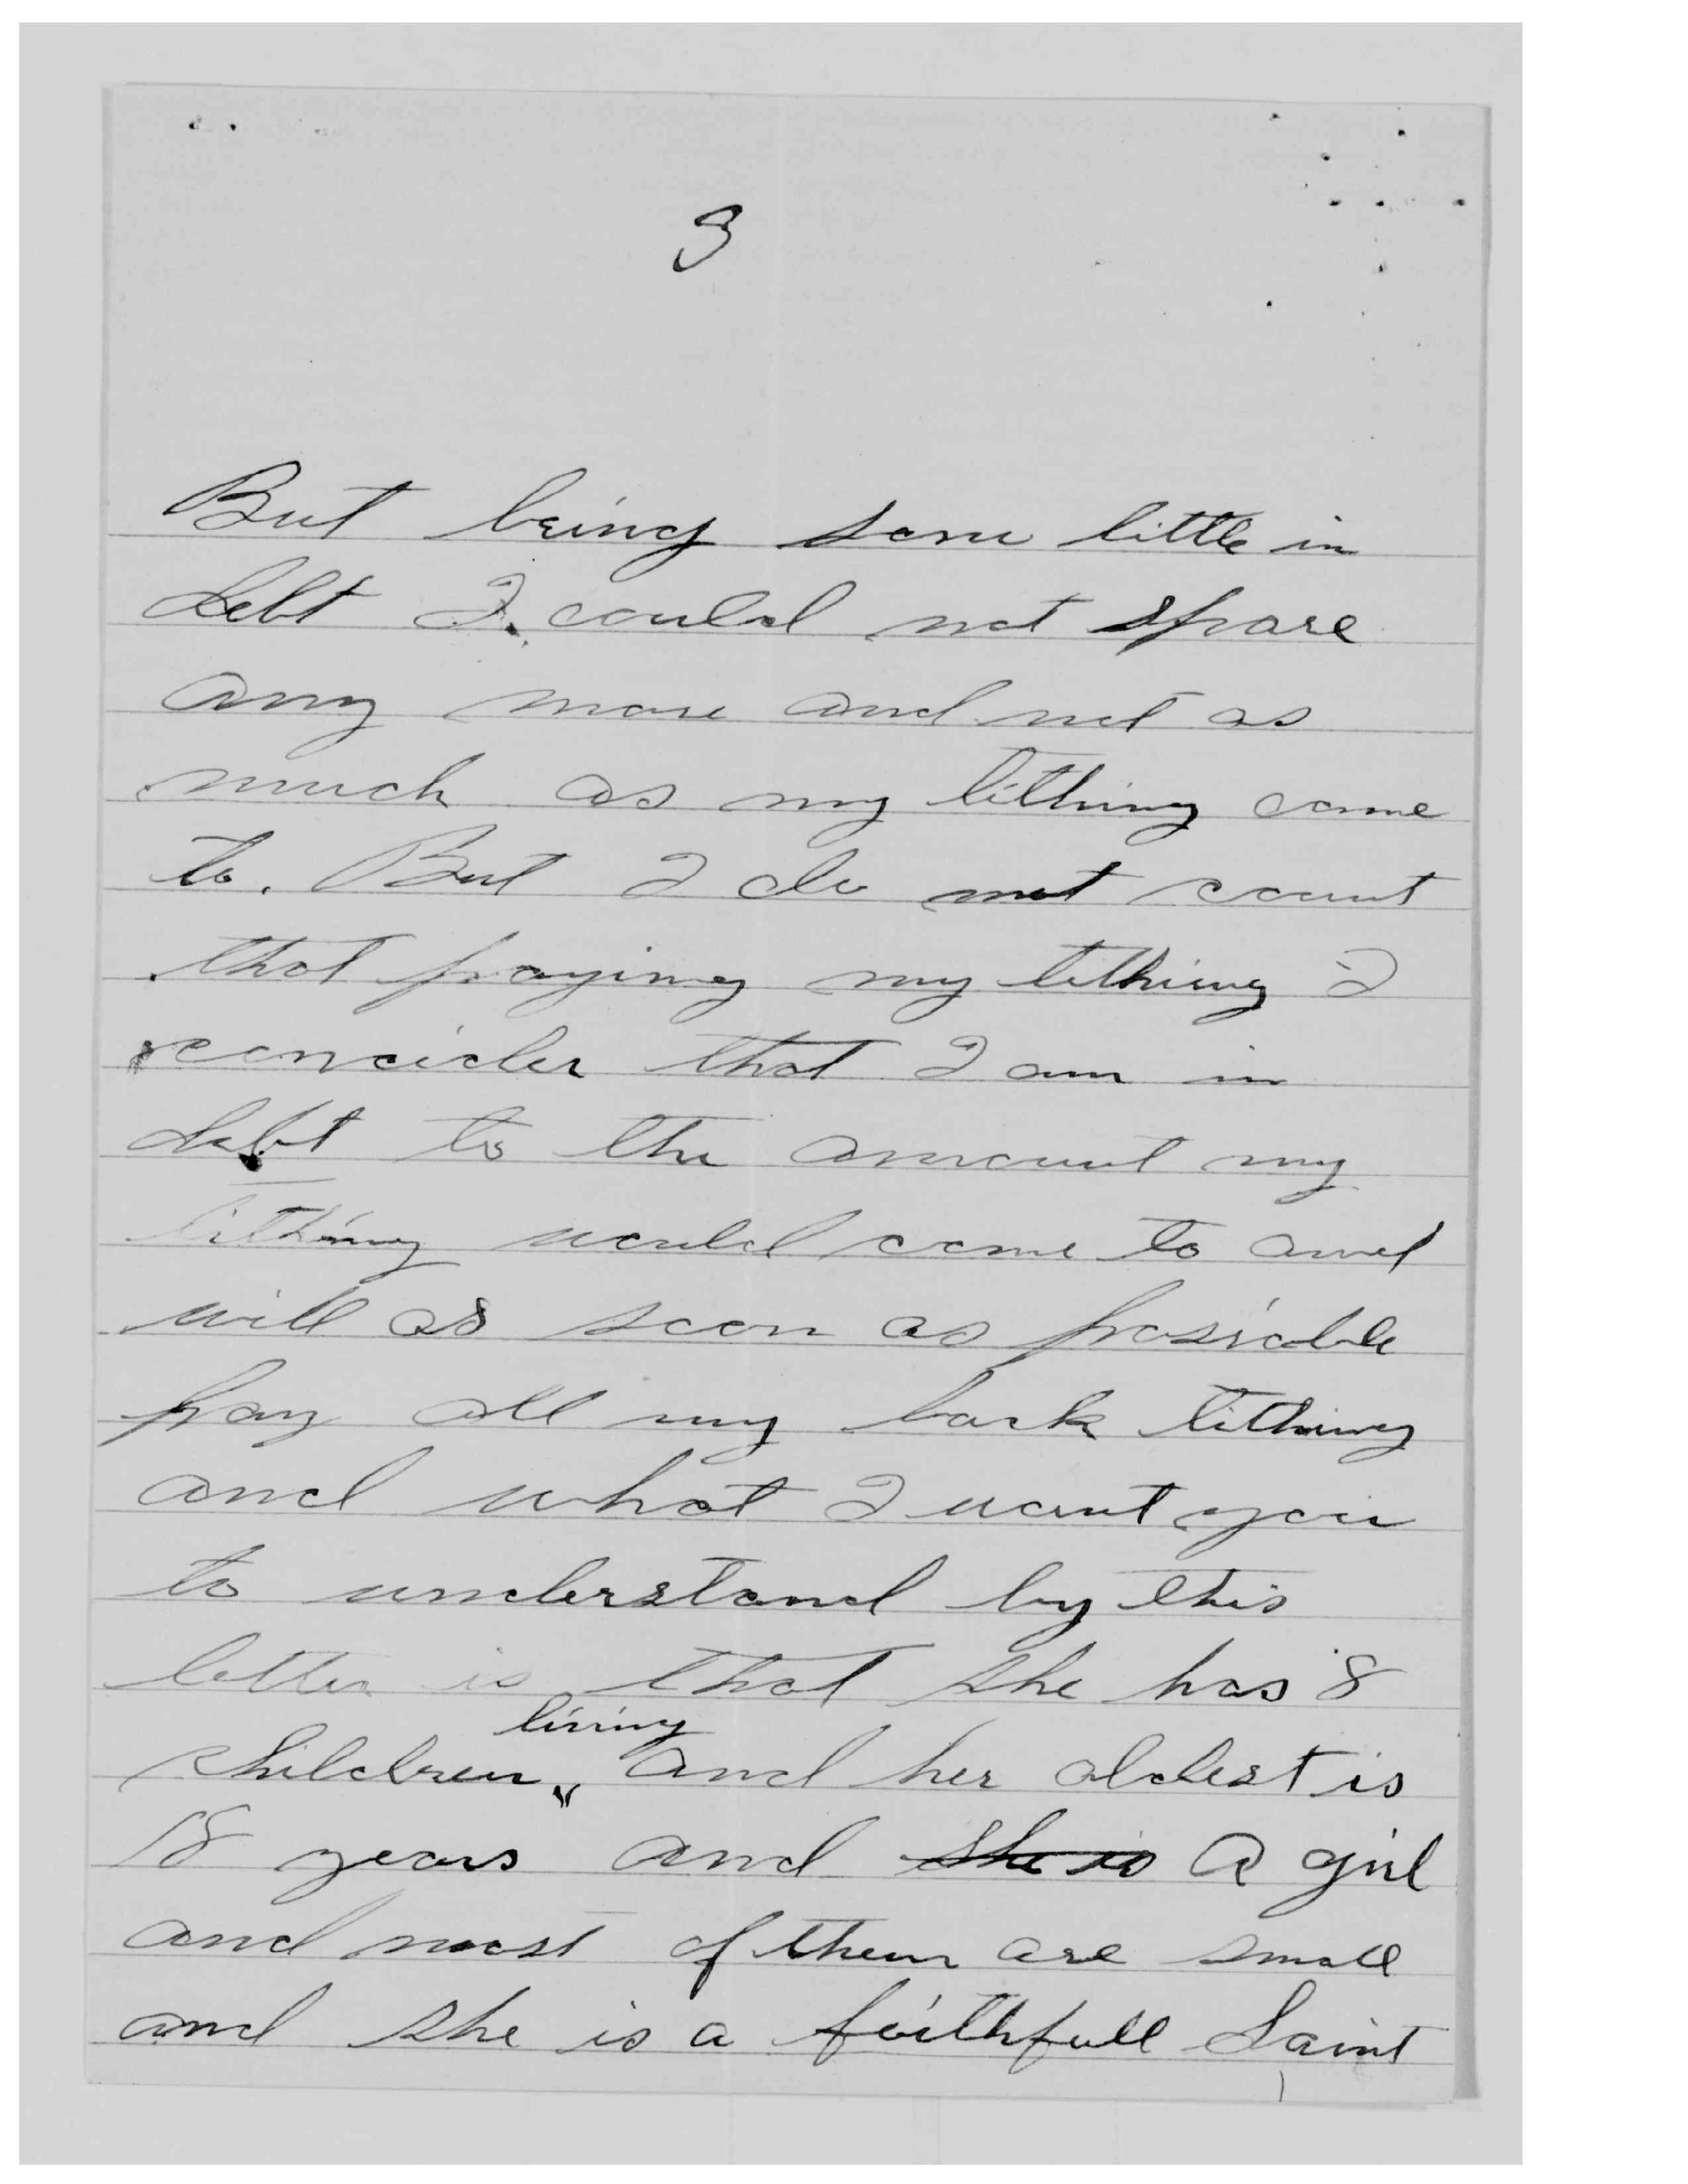 3
But being some little in
debt I could not spare
any more and not as
much as my tithing came
to. But I do not count
that paying my tithing I
concider that I am in
debt to the amount my
tithing would come to and
will as soon as posiable
pay all my back tithing
and what I want you
to understand by this
letter is that she has 8
living
children, and her oldest is
18 years and she is A girl
and most of them are small
and she is a faithfull Saint